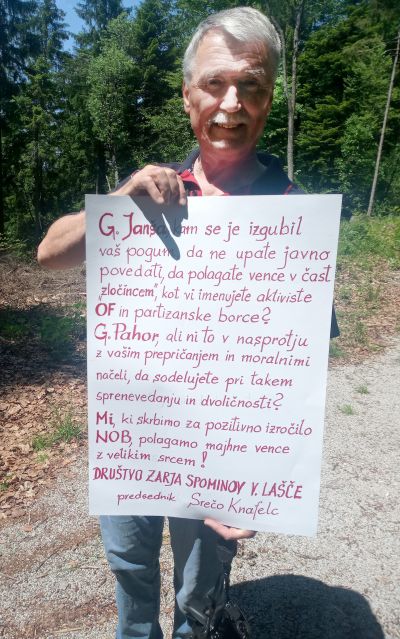 G. Janša, kam se je izgubil
vaš pogum, da ne upate javno
povedati, da polagate vence v čast
"zločincem", kot vi imenujete aktiviste
OF in partizanske borce?
G. Pahor, ali ni to v nasprotju
z vašim prepričanjem in moralnimi
načeli, da sodelujete pri takem
sprenevedanju in dvoličnosti?
Mi, ki skrbimo za pozitivno izročilo
NOB, polagamo majhne vence
z velikim srcem!
DRUŠTVO ZARJA SPOMINOV V. LAŠČE
predsednik Srečo Knafelc